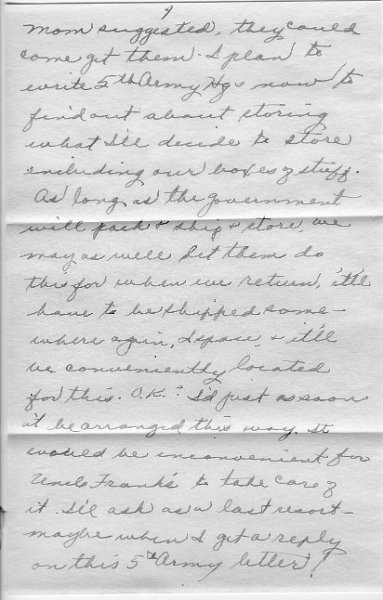 9
mom suggested, they could
come get them. I plan to
write 5th Army Hqs now to
find out about storing
what I'll decide to store
including our boxes of stuff.
As long as the government
will pack & ship & store, we
may as well let them do
this for when we return, it'll
have to be shipped some-
where again, I spose, & it'll
be conveniently located
for this. O.K.? I'd just as soon
it be arranged this way. It
would be inconvenient for
Uncle Frank's to take care of
it. I'll ask as a last resort-
maybe when I get a reply
on this 5th Army letter!